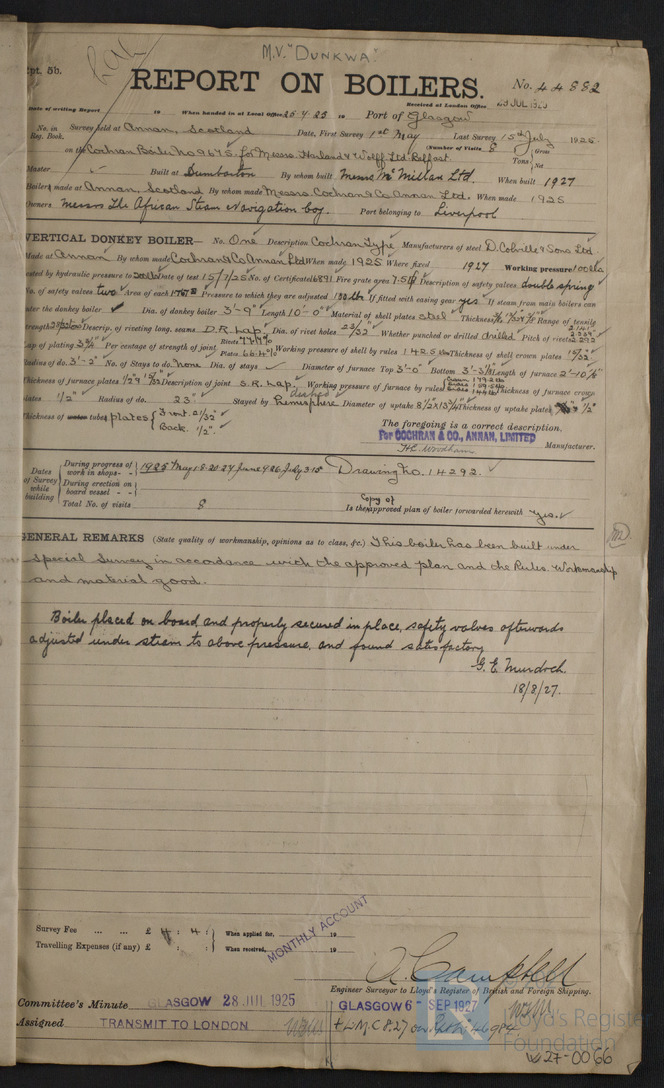 M.V. "DUNKWA"
Rpt. 5b.
REPORT ON BOILERS.
No. 44882
Date of writing Report 19 When handed in at Local Office 25.7.25 19 Port of Glasgow
Received at London Office 29 JUL 1925
No. in Reg. Book. Survey held at Annan, Scotland Date, First Survey 1st May Last Survey 15th July 1925
on the Cochran Boiler No 9675 for Messrs. Harland & Wolff Ltd Belfast. (Number of Visits 8) Tons Gross Net
Master Built at Dumbarton By whom built Messrs McMillan Ltd. When built 1927
Boilers made at Annan, Scotland By whom made Messrs. Cochran & Co Annan Ltd. When made 1925
Owners Messrs The African Steam Navigation Coy. Port belonging to Liverpool
VERTICAL DONKEY BOILER— No. One Description Cochran Type Manufacturers of steel D. Colville & Sons Ltd.
Made at Annan By whom made Cochran & Co Annan Ltd When made 1925 Where fixed 1927 Working pressure 100 lbs
tested by hydraulic pressure to 200 lbs Date of test 15/7/25 No. of Certificate 16891 Fire grate area Description of safety valves double spring
No. of safety valves two Area of each Pressure to which they are adjusted If fitted with easing gear yes If steam from main boilers can
enter the donkey boiler Dia. of donkey boiler 3'-9" Length 10'-0" Material of shell plates steel Thickness Range of tensile
strength Descrip. of riveting long. seams D.R. Lap. Dia. of rivet holes 23/32" Whether punched or drilled drilled Pitch of rivets
Lap of plating Per centage of strength of joint Rivets Plates 66.4% Working pressure of shell by rules Thickness of shell crown plates
Radius of do. 3'-2" No. of Stays to do. none Dia. of stays Diameter of furnace Top 3'-0" Bottom Length of furnace
Thickness of furnace plates Description of joint S.R. Lap. Working pressure of furnace by rules Thickness of furnace crown
plates 1/2" Radius of do. 23" Stayed by dished Hemisphere Diameter of uptake Thickness of uptake plates 1/2"
Thickness of tube plates { Front. 21/32"
Back. 1/2".
The foregoing is a correct description.
For COCHRAN & CO., ANNAN, LIMITED
Manufacturer.
Dates of Survey while building
During progress of work in shops - - 1925 May 1 8.20.27 June 9.26 July 3.15
During erection on board vessel - -
Total No. of visits 8
Drawing No. 14292.
Is the copy of approved plan of boiler forwarded herewith yes.
GENERAL REMARKS (State quality of workmanship, opinions as to class, &c.) This boiler has been built under
special survey in accordance with the approved plan and the Rules. Workmanship
and material good.
Boiler placed on board and properly secured in place, safety valves afterwards
adjusted under steam to above pressure, and found satisfactory
G. E. Murdoch.
18/8/27.
Survey Fee ... ... £ 4 : 4 : When applied for, 19
Travelling Expenses (if any) £ : : When received, 19
MONTHLY ACCOUNT
A. Campbell
Engineer Surveyor to Lloyd's Register of British and Foreign Shipping.
Committee's Minute GLASGOW 28 JUL 1925 GLASGOW 6 - SEP 1927
Assigned TRANSMIT TO LONDON + LMC 8.27 on Rpt No 46984
Lloyd's Register
Foundation
W27-0066